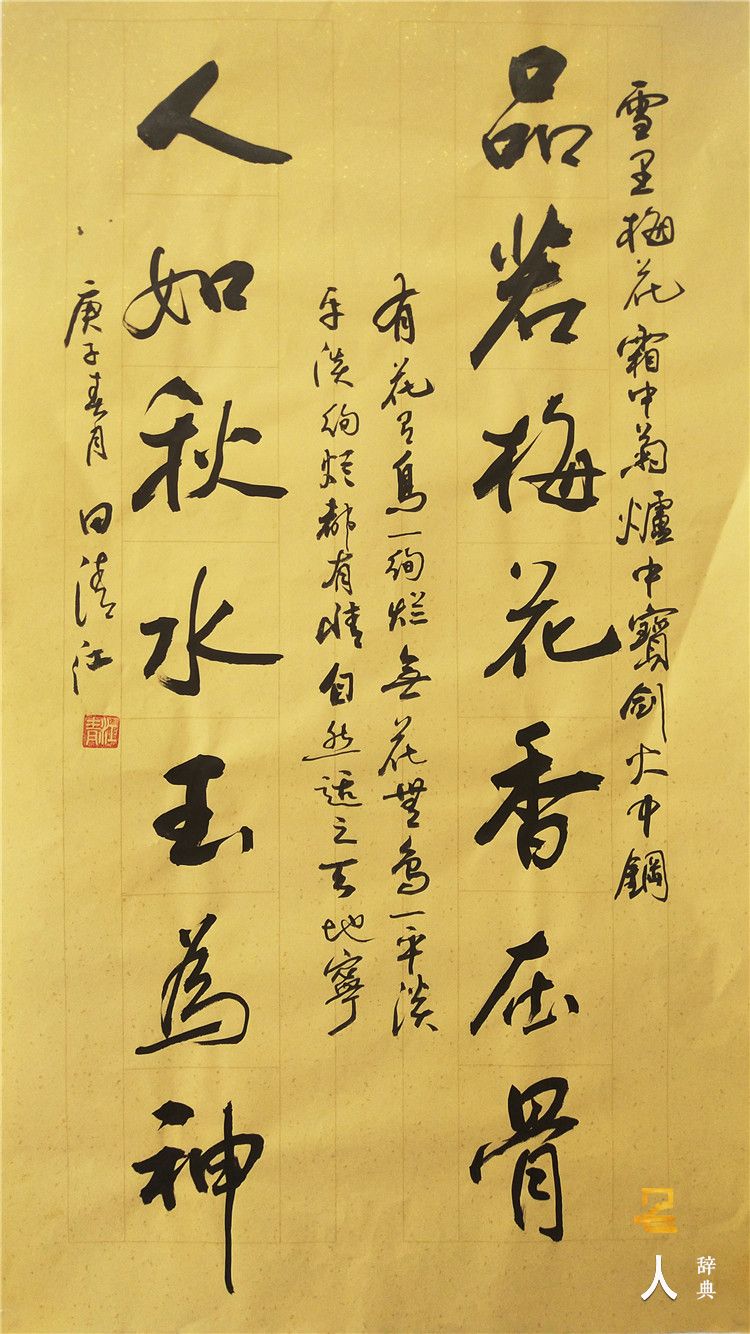 雪里梅花霜中菊爐中寳剑火中鋼
品若梅花香在骨
有花有鸟一绚烂無花無鸟一平淡
平淡绚烂都有情自然适之天地寧
人如秋水玉為神
庚子春月田清江
人
辞典